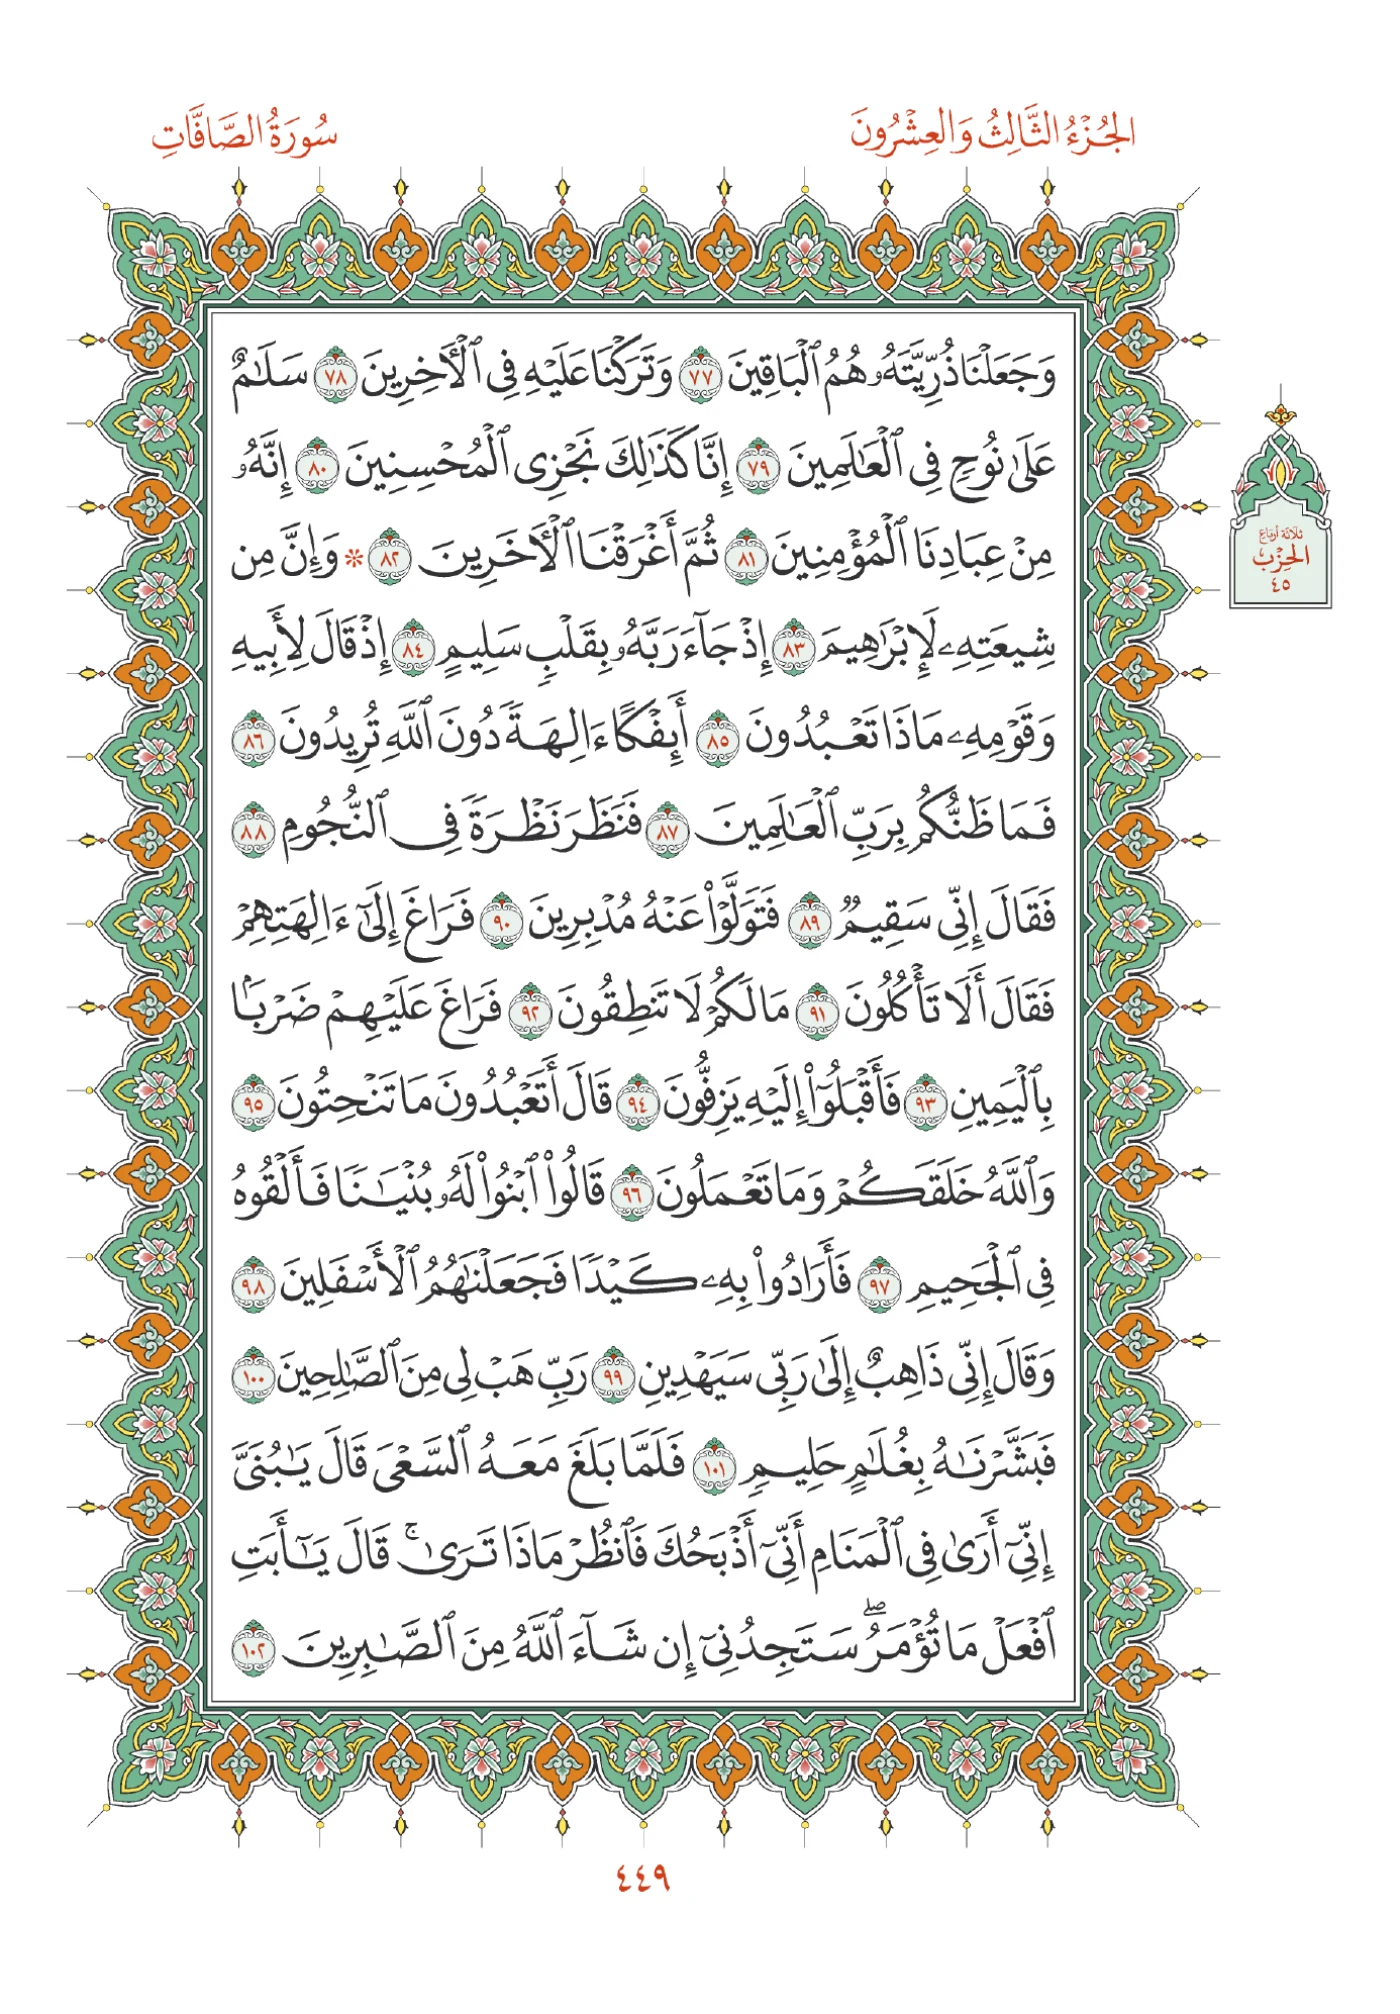 الجُزْءُ الثَّالِثُ وَالعِشْرُونَ
سُورَةُ الصَّافَّاتِ
وَجَعَلْنَا ذُرِّيَّتَهُۥ هُمُ ٱلْبَاقِينَ ٧٧ وَتَرَكْنَا عَلَيْهِ فِى ٱلْأٓخِرِينَ ٧٨ سَلَٰمٌ
عَلَىٰ نُوحٍ فِى ٱلْعَٰلَمِينَ ٧٩ إِنَّا كَذَٰلِكَ نَجْزِى ٱلْمُحْسِنِينَ ٨٠ إِنَّهُۥ
مِنْ عِبَادِنَا ٱلْمُؤْمِنِينَ ٨١ ثُمَّ أَغْرَقْنَا ٱلْأٓخَرِينَ ٨٢ * وَإِنَّ مِن
شِيعَتِهِۦ لَإِبْرَٰهِيمَ ٨٣ إِذْ جَآءَ رَبَّهُۥ بِقَلْبٍ سَلِيمٍ ٨٤ إِذْ قَالَ لِأَبِيهِ
وَقَوْمِهِۦ مَاذَا تَعْبُدُونَ ٨٥ أَئِفْكًا ءَالِهَةً دُونَ ٱللَّهِ تُرِيدُونَ ٨٦
فَمَا ظَنُّكُم بِرَبِّ ٱلْعَٰلَمِينَ ٨٧ فَنَظَرَ نَظْرَةً فِى ٱلنُّجُومِ ٨٨
فَقَالَ إِنِّى سَقِيمٌ ٨٩ فَتَوَلَّوْا۟ عَنْهُ مُدْبِرِينَ ٩٠ فَرَاغَ إِلَىٰٓ ءَالِهَتِهِمْ
فَقَالَ أَلَا تَأْكُلُونَ ٩١ مَا لَكُمْ لَا تَنطِقُونَ ٩٢ فَرَاغَ عَلَيْهِمْ ضَرْبًۢا
بِٱلْيَمِينِ ٩٣ فَأَقْبَلُوٓا۟ إِلَيْهِ يَزِفُّونَ ٩٤ قَالَ أَتَعْبُدُونَ مَا تَنْحِتُونَ ٩٥
وَٱللَّهُ خَلَقَكُمْ وَمَا تَعْمَلُونَ ٩٦ قَالُوا۟ ٱبْنُوا۟ لَهُۥ بُنْيَٰنًا فَأَلْقُوهُ
فِى ٱلْجَحِيمِ ٩٧ فَأَرَادُوا۟ بِهِۦ كَيْدًا فَجَعَلْنَٰهُمُ ٱلْأَسْفَلِينَ ٩٨
وَقَالَ إِنِّى ذَاهِبٌ إِلَىٰ رَبِّى سَيَهْدِينِ ٩٩ رَبِّ هَبْ لِى مِنَ ٱلصَّٰلِحِينَ ١٠٠
فَبَشَّرْنَٰهُ بِغُلَٰمٍ حَلِيمٍ ١٠١ فَلَمَّا بَلَغَ مَعَهُ ٱلسَّعْىَ قَالَ يَٰبُنَىَّ
إِنِّىٓ أَرَىٰ فِى ٱلْمَنَامِ أَنِّىٓ أَذْبَحُكَ فَٱنظُرْ مَاذَا تَرَىٰ ۚ قَالَ يَٰٓأَبَتِ
ٱفْعَلْ مَا تُؤْمَرُ ۖ سَتَجِدُنِىٓ إِن شَآءَ ٱللَّهُ مِنَ ٱلصَّٰبِرِينَ ١٠٢
ثلاثة أرباع
الحِزْب
٤٥
٤٤٩